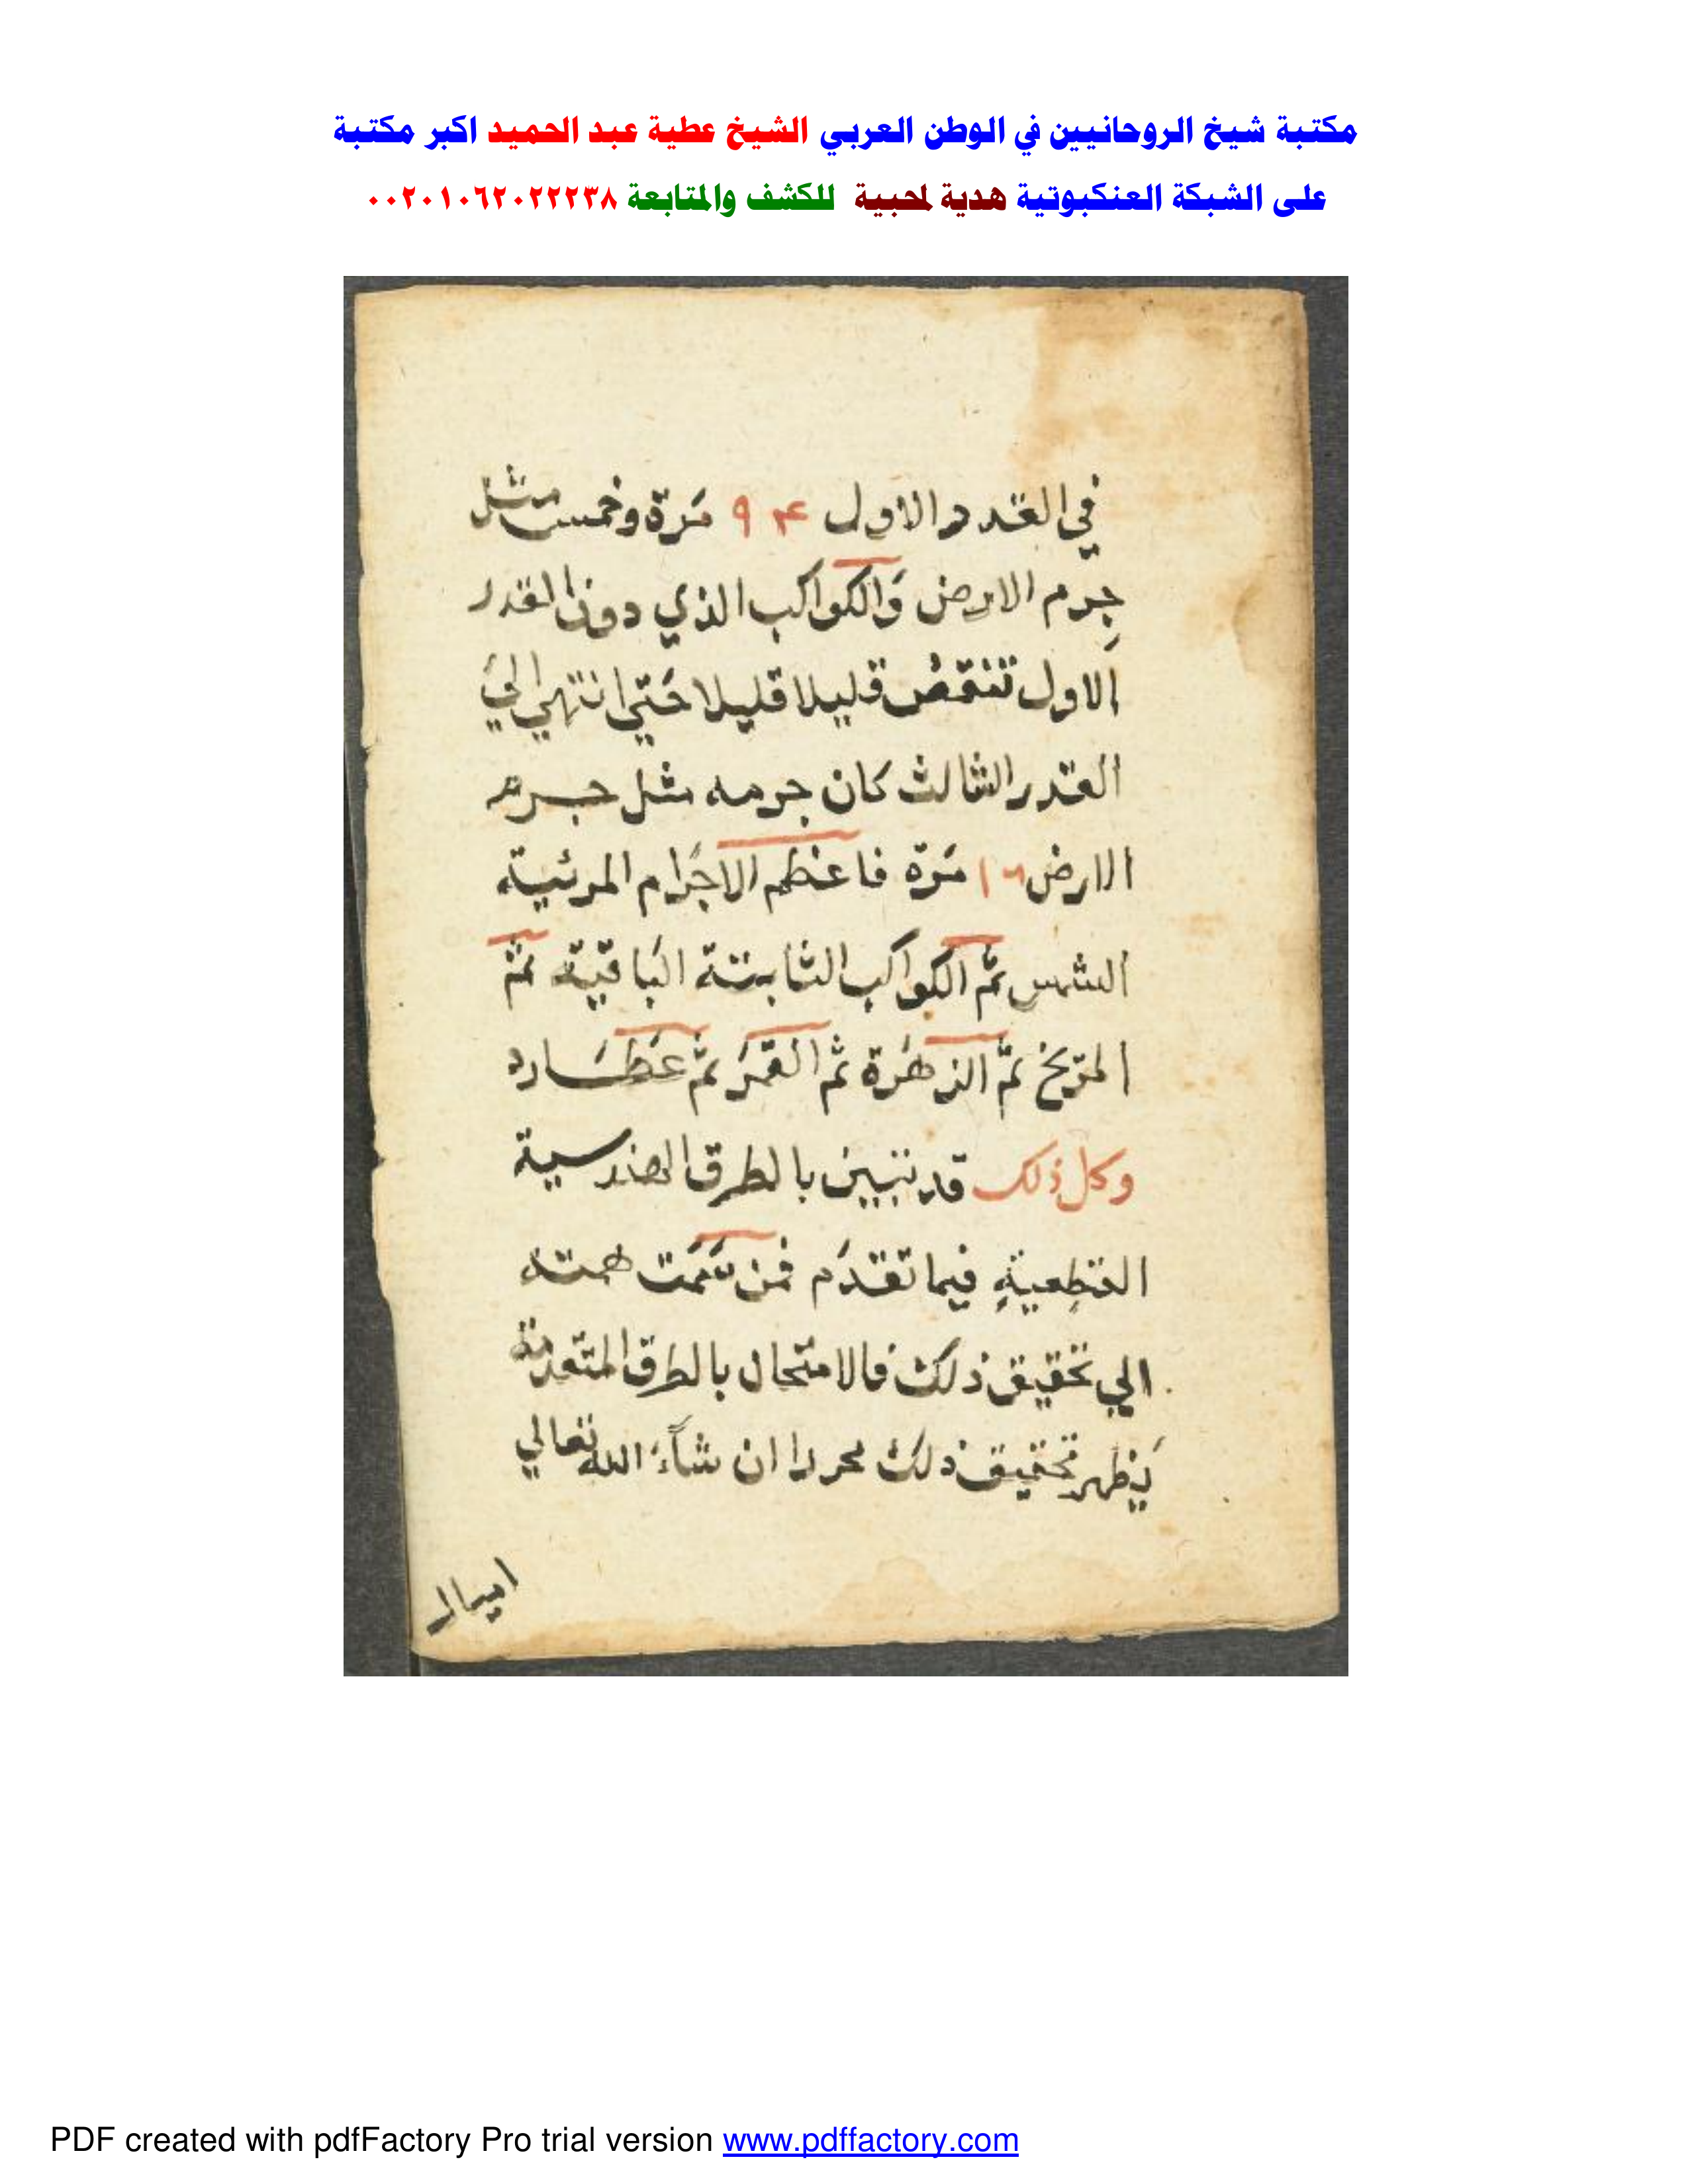 مكتبة شيخ الروحانيين في الوطن العربي الشيخ عطية عبد الحميد اكبر مكتبة
على الشبكة العنكبوتية هدية لمحبية للكشف والمتابعة ٠٠٢٠١٠٦٢٠٢٢٢٣٨
في القدر الاول ٩٤ مَرة وخمس مثل
جِرم الارض وَالكواكب الذي دون القدر
الاول تنقص قليلا قليلا حَتي انتهي الي
القدر الثالث كان جرمه مثل جرم
الارض ١٦ مَرّة فاعظم الاجرَام المرئية
الشمس ثمّ الكواكب الثابتة البَاقية ثمّ
المرّيخ ثمّ الزهَرة ثم القمَر ثمّ عَطَارد
وكل ذلك قد تبين بالطرق الهندسية
القطعيةِ فيما تقدَم فمن سَمَت همته
الي تحقيق ذلك فالامتحان بالطرق المتقدمة
يَظهر تحقيق ذلك محررا ان شآءَ الله تعالي
PDF created with pdfFactory Pro trial version www.pdffactory.com